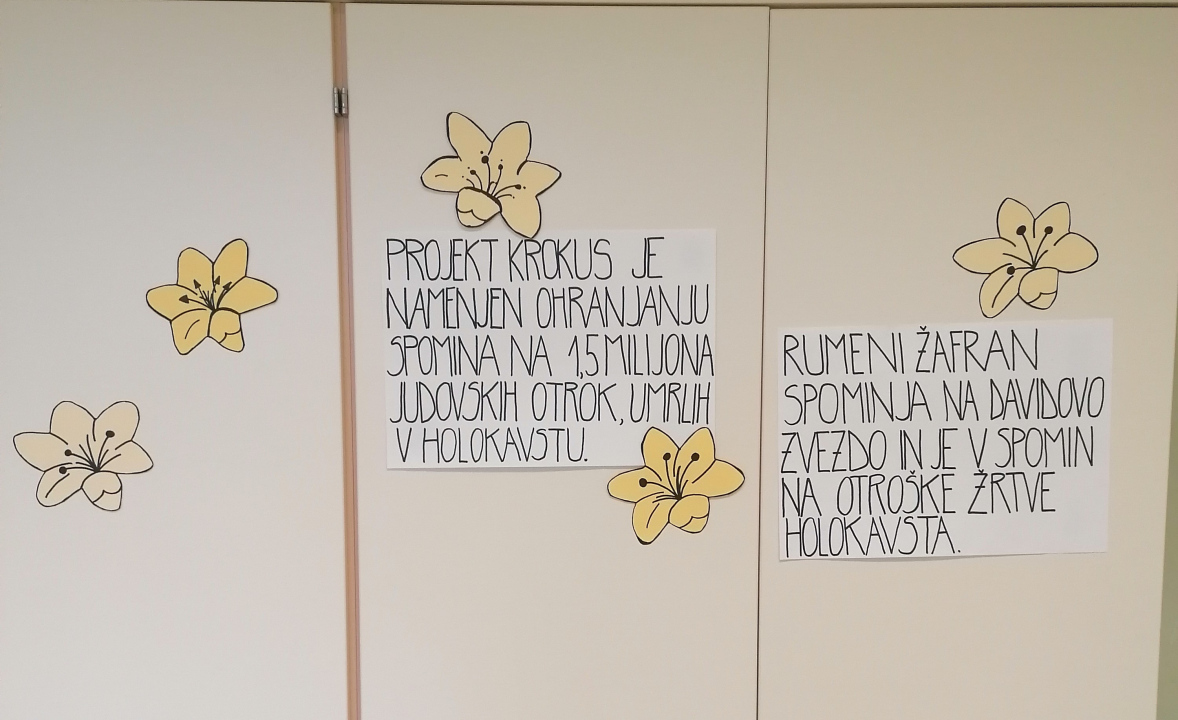 PROJEKT KROKUS JE
NAMENJEN OHRANJANJU
SPOMINA NA 1,5 MILIJONA
JUDOVSKIH OTROK, UMRLIH
V HOLOKAVSTU.
RUMENI ŽAFRAN
SPOMINJA NA DAVIDOVO
ZVEZDO IN JE V SPOMIN
NA OTROŠKE ŽRTVE
HOLOKAVSTA.